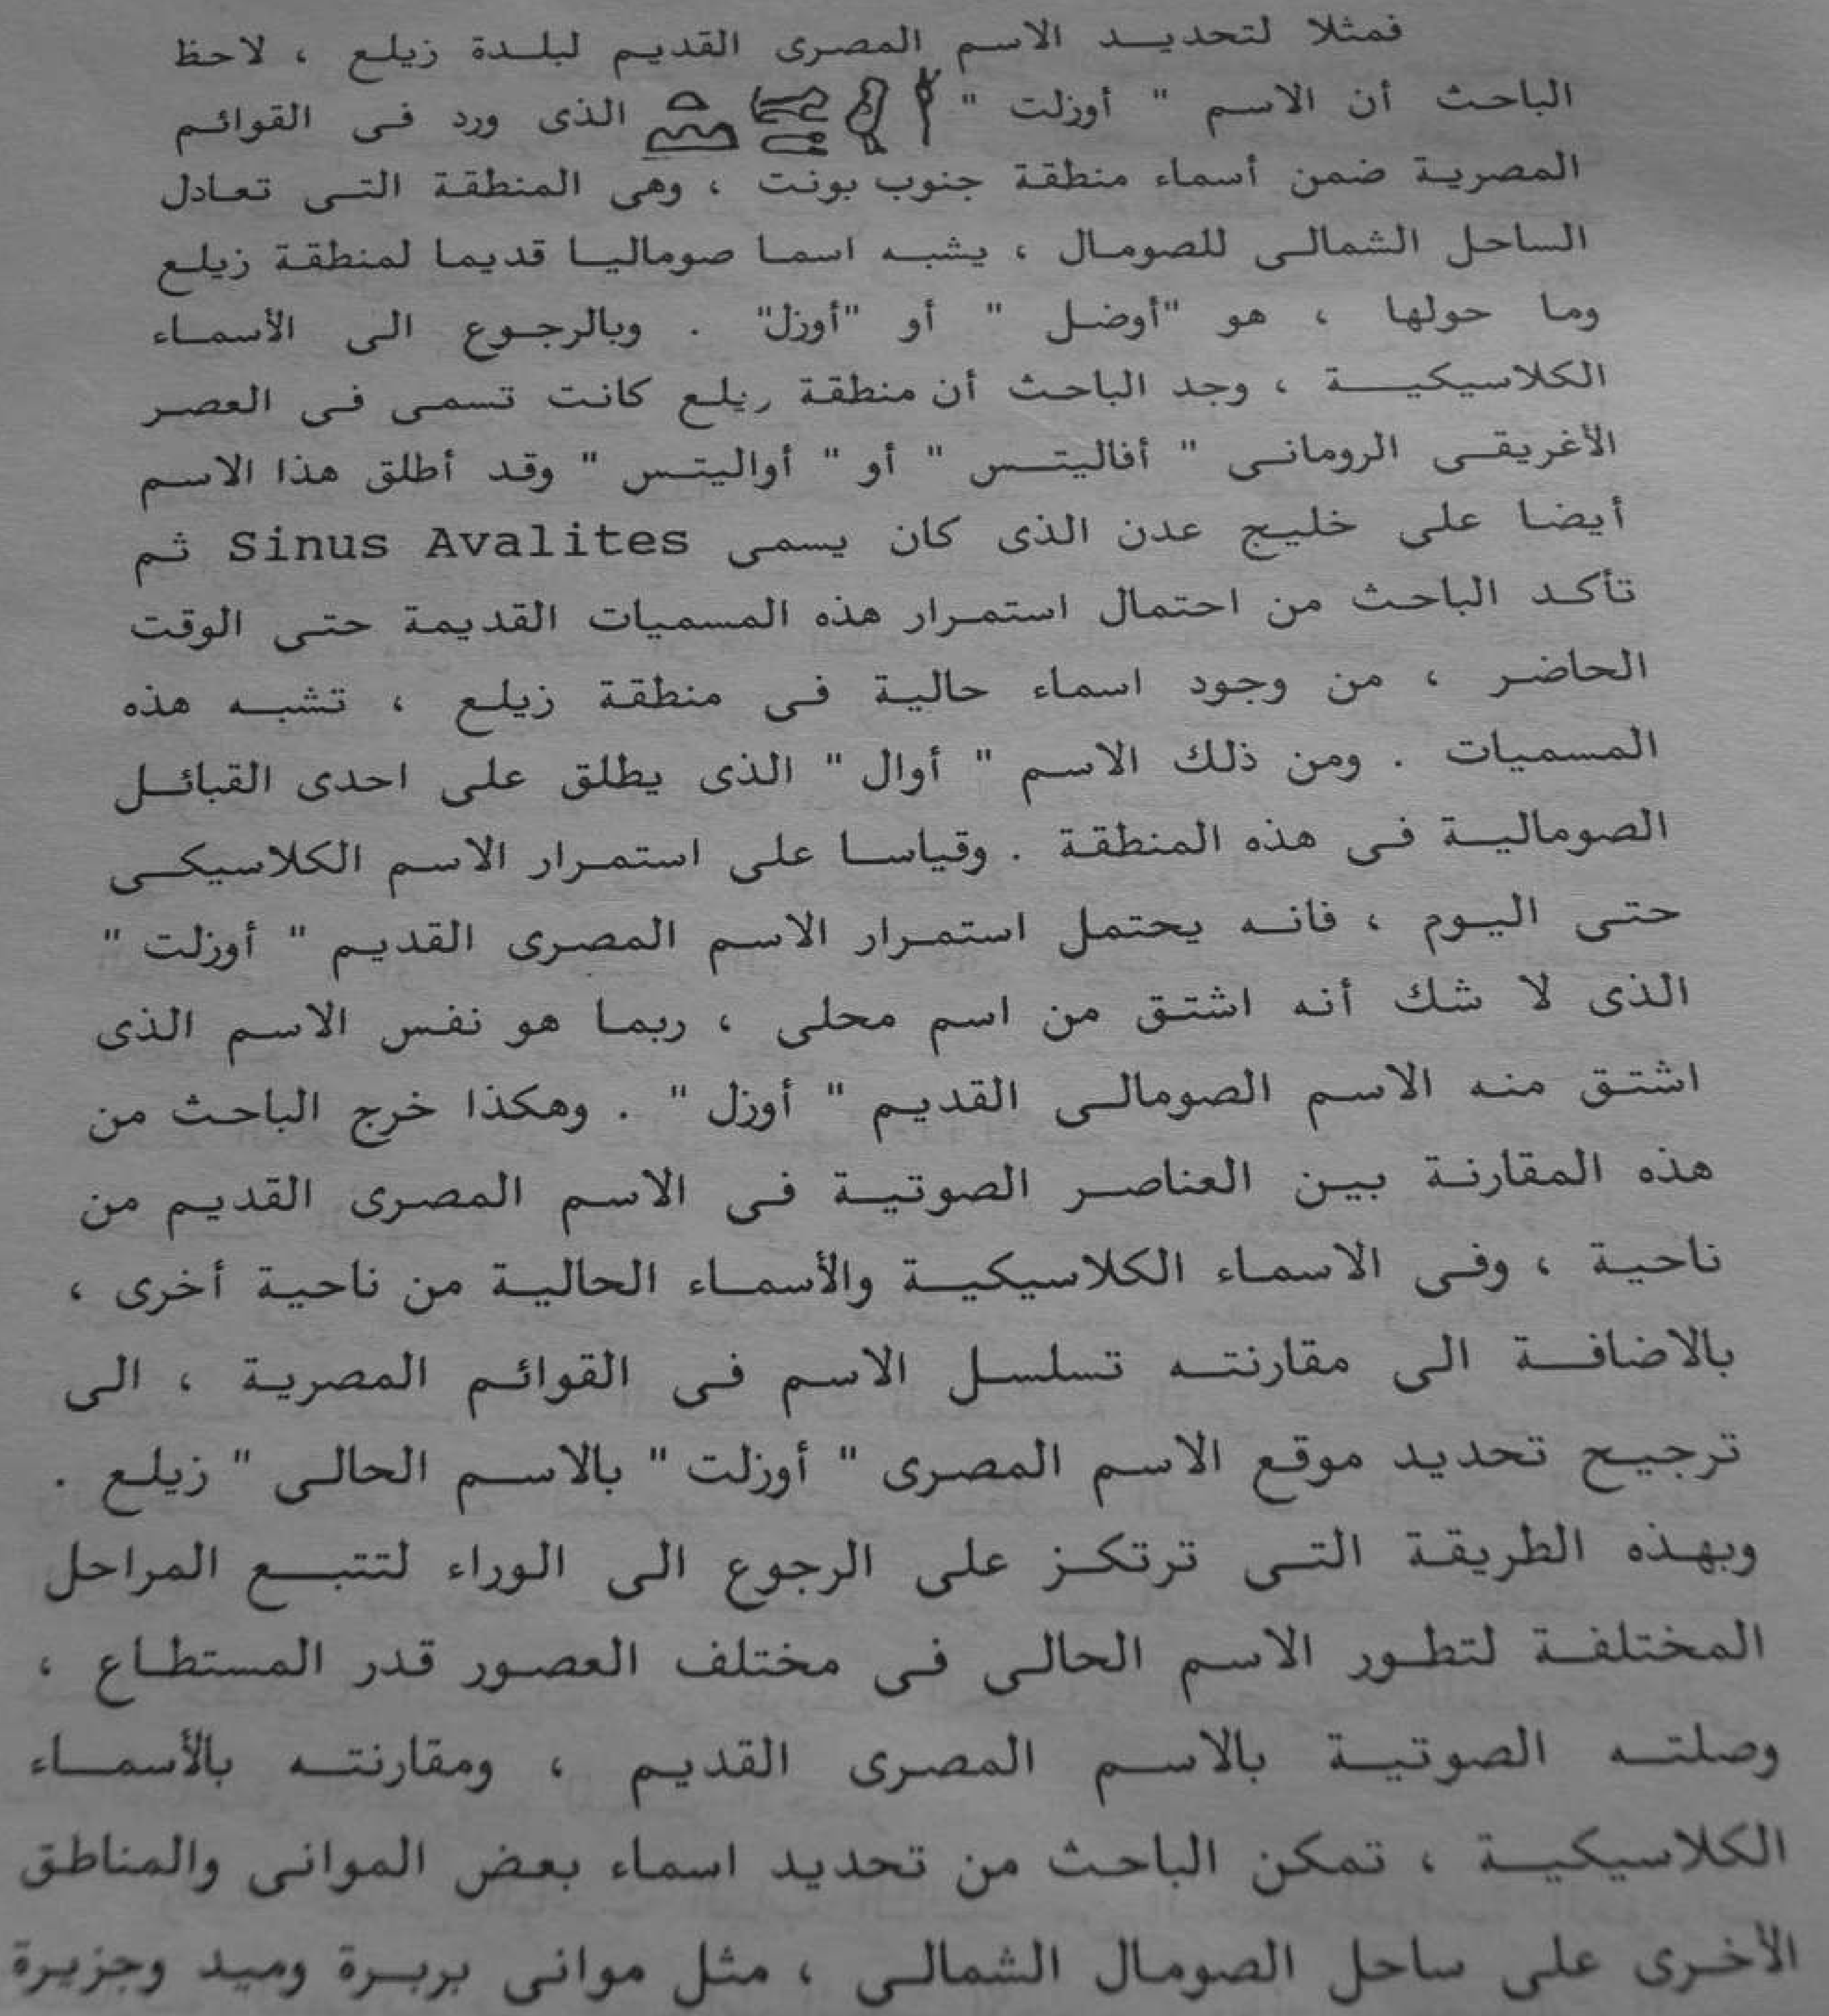 فمثلا لتحديد الاسم المصرى القديم لبلدة زيلع ، لاحظ
الباحث أن الاسم " أوزلت " الذى ورد فى القوائم
المصرية ضمن أسماء منطقة جنوب بونت ، وهى المنطقة التى تعادل
الساحل الشمالى للصومال ، يشبه اسما صوماليا قديما لمنطقة زيلع
وما حولها ، هو "أوضل " أو "أوزل" . وبالرجوع الى الأسماء
الكلاسيكية ، وجد الباحث أن منطقة ريلع كانت تسمى فى العصر
الأغريقى الرومانى " أفاليتس " أو " أواليتس " وقد أطلق هذا الاسم
أيضا على خليج عدن الذى كان يسمى Sinus Avalites ثم
تأكد الباحث من احتمال استمرار هذه المسميات القديمة حتى الوقت
الحاضر ، من وجود اسماء حالية فى منطقة زيلع ، تشبه هذه
المسميات . ومن ذلك الاسم " أوال " الذى يطلق على احدى القبائل
الصومالية فى هذه المنطقة . وقياسا على استمرار الاسم الكلاسيكى
حتى اليوم ، فانه يحتمل استمرار الاسم المصرى القديم " أوزلت "
الذى لا شك أنه اشتق من اسم محلى ، ربما هو نفس الاسم الذى
اشتق منه الاسم الصومالى القديم " أوزل " . وهكذا خرج الباحث من
هذه المقارنة بين العناصر الصوتية فى الاسم المصرى القديم من
ناحية ، وفى الاسماء الكلاسيكية والأسماء الحالية من ناحية أخرى ،
بالاضافة الى مقارنته تسلسل الاسم فى القوائم المصرية ، الى
ترجيح تحديد موقع الاسم المصرى " أوزلت " بالاسم الحالى " زيلع .
وبهذه الطريقة التى ترتكز على الرجوع الى الوراء لتتبع المراحل
المختلفة لتطور الاسم الحالى فى مختلف العصور قدر المستطاع ،
وصلته الصوتية بالاسم المصرى القديم ، ومقارنته بالأسماء
الكلاسيكية ، تمكن الباحث من تحديد اسماء بعض الموانى والمناطق
الأخرى على ساحل الصومال الشمالى ، مثل موانى بربرة وميد وجزيرة